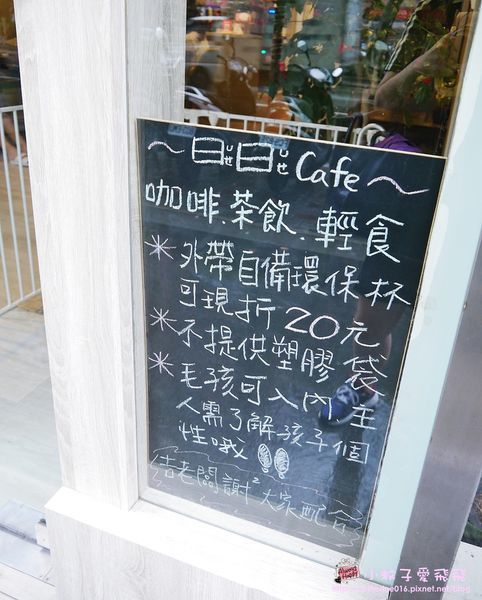 ~日日Cafe~
ㄝˋㄝˋ
咖啡.茶飲.輕食
＊外帶自備環保杯
可現折20元
＊不提供塑膠袋
＊毛孩可入內,主
人需了解孩子個
性哦
店老闆謝²大家配合
小啾子愛飛飛